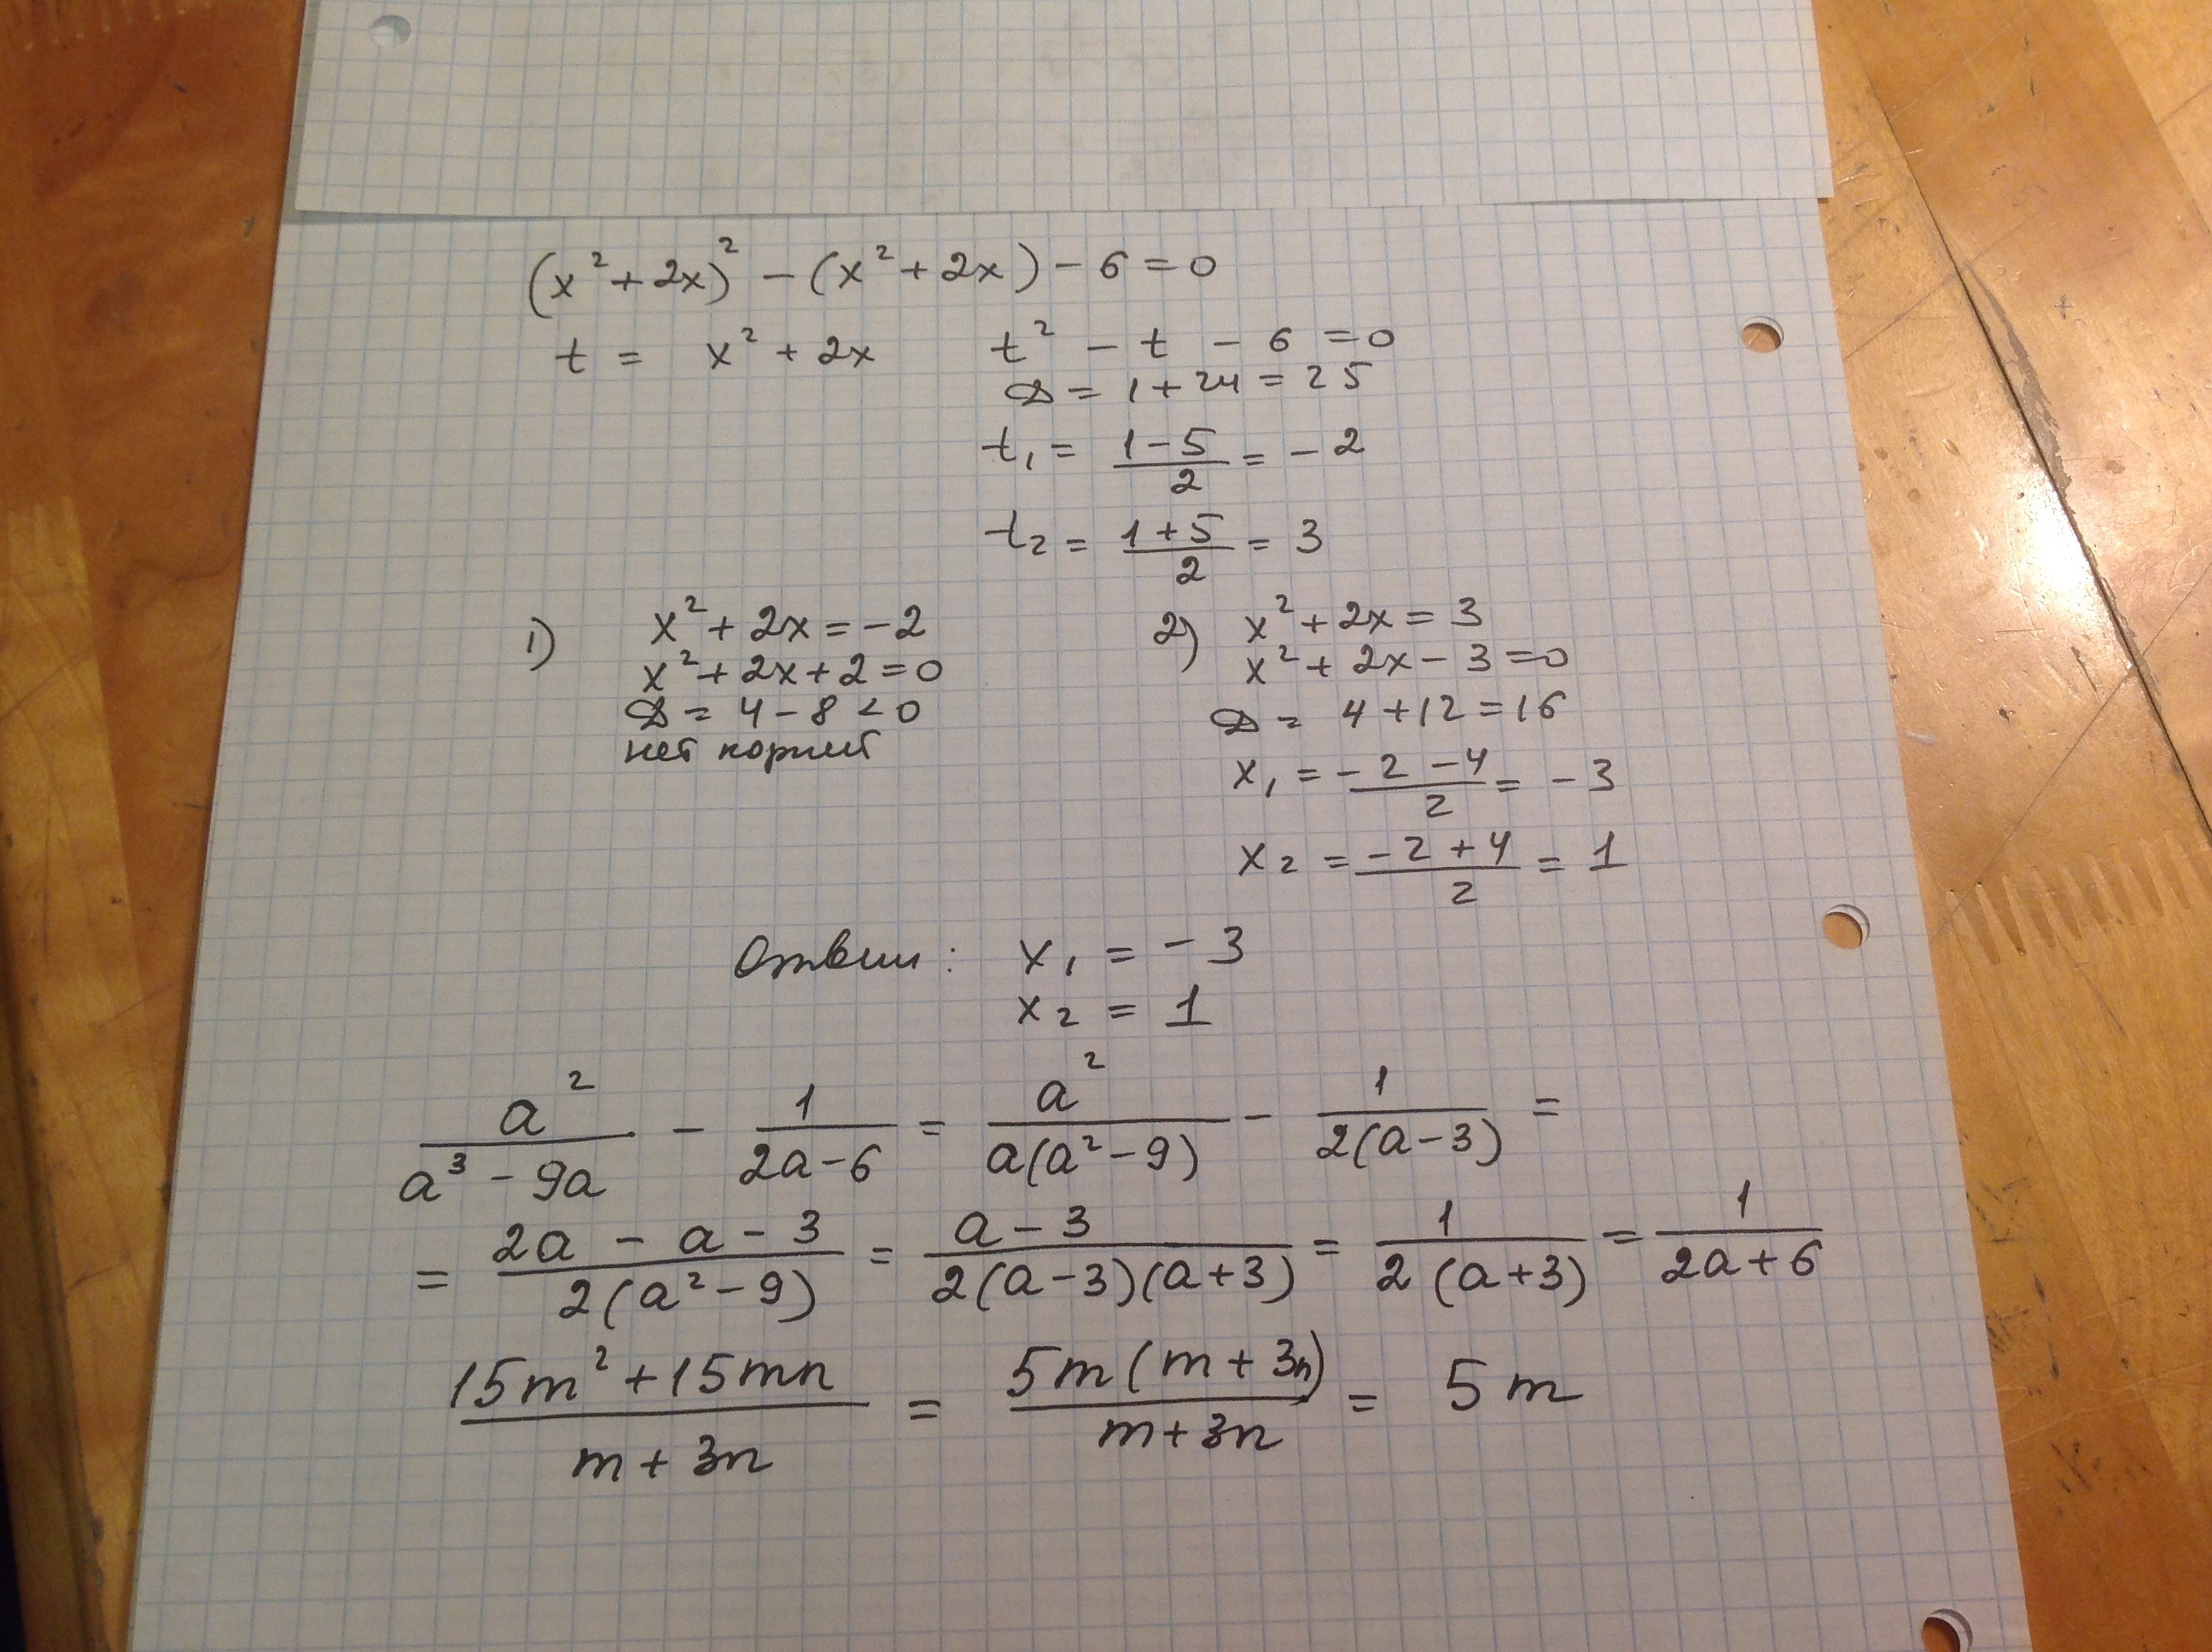 (x² + 2x)² - (x² + 2x) - 6 = 0
t = x² + 2x    t² - t - 6 = 0
D = 1 + 24 = 25
t₁ = (1 - 5)/2 = -2
t₂ = (1 + 5)/2 = 3
1) x² + 2x = -2    2) x² + 2x = 3
x² + 2x + 2 = 0    x² + 2x - 3 = 0
D = 4 - 8 < 0    D = 4 + 12 = 16
нет корней    x₁ = (-2 - 4)/2 = -3
x₂ = (-2 + 4)/2 = 1
Ответ: x₁ = -3
x₂ = 1
a²/(a³ - 9a) - 1/(2a - 6) = a²/(a(a² - 9)) - 1/(2(a - 3)) =
= (2a - a - 3)/(2(a² - 9)) = (a - 3)/(2(a - 3)(a + 3)) = 1/(2(a + 3)) = 1/(2a + 6)
(15m² + 15mn)/(m + 3n) = (5m(m + 3n))/(m + 3n) = 5m